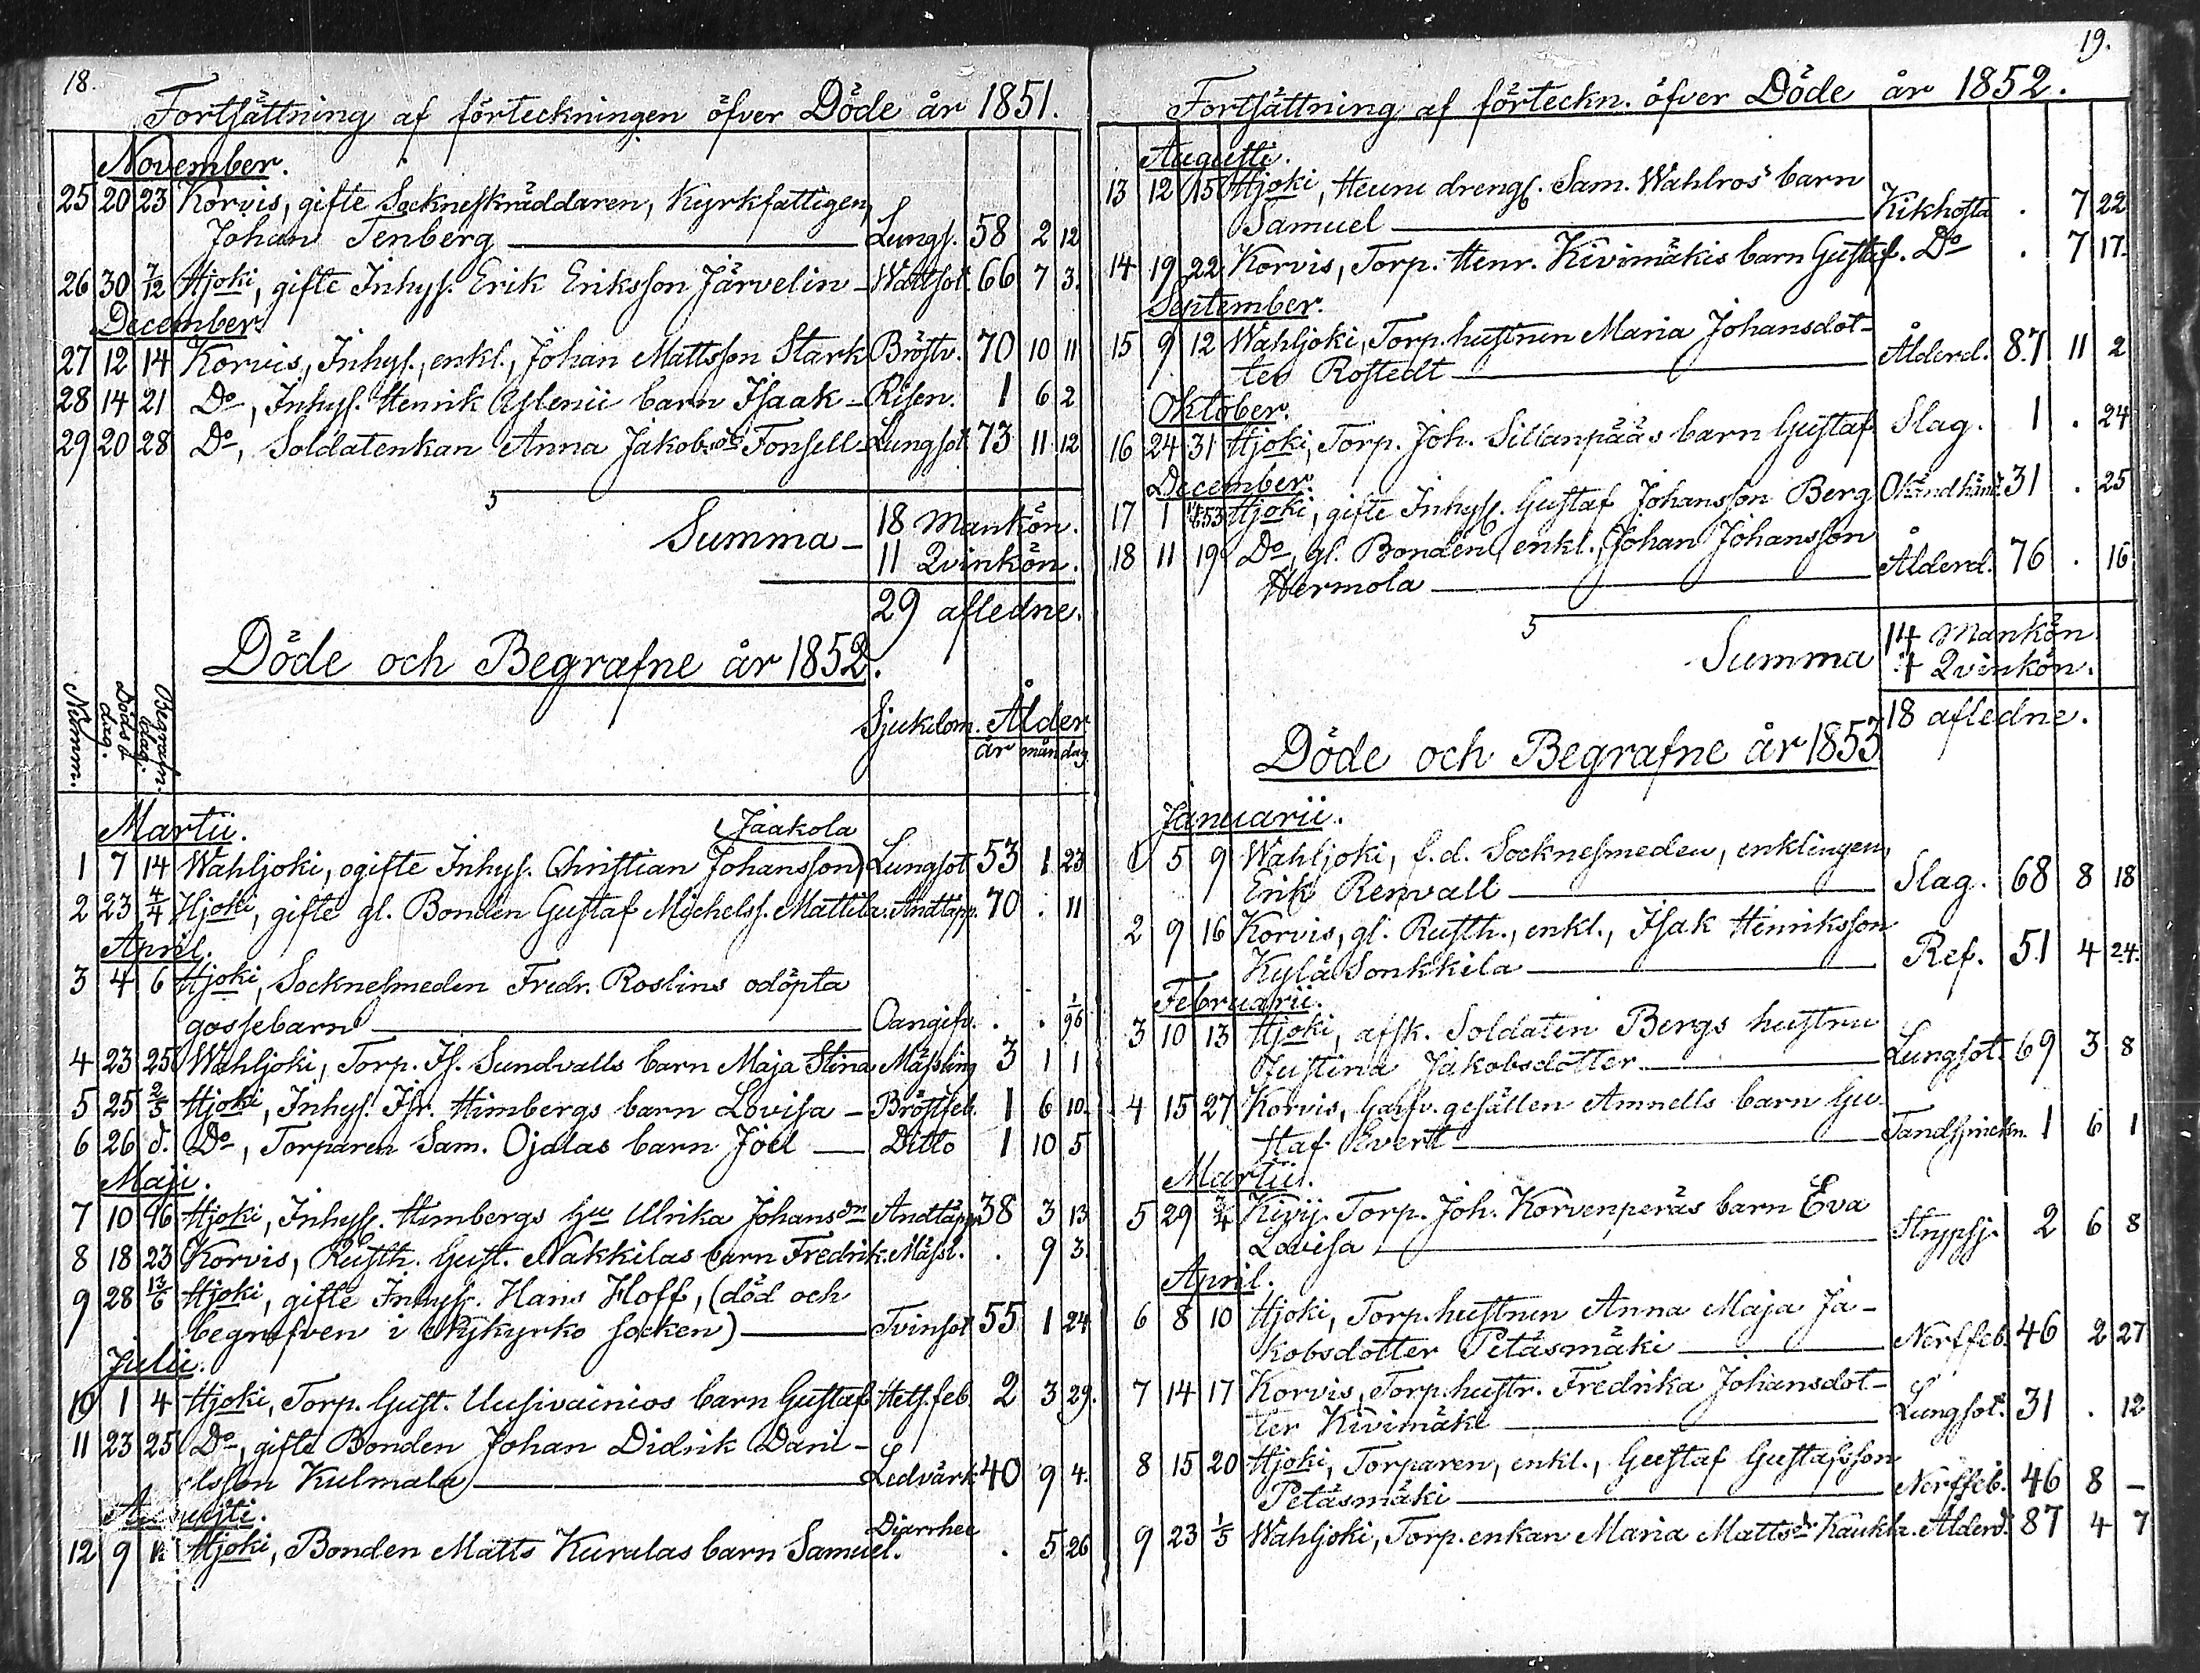 18.
Fortsättning af förteckningen öfver Döde år 1851.
November.
25 20 23 Korvis, gifte Sockneskräddaren, Kyrkfattigen,
Johan Tenberg Lungs. 58 2 12
26 30 7/12 Hjoki, gifte Inhys. Erik Eriksson Järvelin Wattsot. 66 7 3.
December.
27 12 14 Korvis, Inhys., enkl., Johan Mattsson Stark Bröstv. 70 10 11
28 14 21 Do, Inhys. Henrik Aslenii barn Isaak Risen. 1 6 2
29 20 28 Do, Soldatenkan Anna Jakobsdr Fonsell Lungsot. 73 11 12
5
Summa 18 Mankön.
11 Qvinkön.
29 afledne.
Döde och Begrafne år 1852.
Numm. Döds dag. Begrafn. dag. Sjukdom. Ålder
år mån dag
Martii.
Jaakola
1 7 14 Wahljoki, ogifte Inhys. Christian Johansson) Lungsot 53 1 23
2 23 4/4 Hjoki, gifte gl. Bonden Gustaf Michelss. Mattila. Andtäpp. 70 . 11
April.
3 4 6 Hjoki, Socknesmeden Fredr. Roslins odöpta
gossebarn Oangifv. . . 1/96
4 23 25 Wahljoki, Torp. Is. Sundvalls barn Maja Stina Mässling 3 1 1
5 25 2/5 Hjoki, Inhys. Isr. Himbergs barn Lovisa Bröstfeb. 1 6 10.
6 26 d. Do, Torparen Sam. Ojalas barn Joël Ditto 1 10 5
Maji.
7 10 16 Hjoki, Inhys. Himbergs hu Ulrika Johansdn Andtäpp. 38 3 13
8 18 23 Korvis, Rusth. Gust. Nakkilas barn Fredrik. Mässl. . 9 3.
9 28 13/6 Hjoki, gifte Inhys. Hans Hoff, (död och
begrafven i Nykyrko socken) Tvinsot 55 1 24
Julii.
10 1 4 Hjoki, Torp. Gust. Uusivainios barn Gustaf Hets.feb. 2 3 29.
11 23 25 Do, gifte Bonden Johan Didrik Dani-
elsson Kulmala Ledvärk 40 9 4.
Augusti.
12 9 Hjoki, Bonden Matts Kurulas barn Samuel. Diarrhee . 5 26
19.
Fortsättning af förteckn. öfver Döde år 1852.
Augusti.
13 12 15 Hjoki, Heunu drengs. Sam. Wahlros' barn
Samuel Kikhosta . 7 22
14 19 22 Korvis, Torp. Henr. Kivimäkis barn Gustaf. Do . 7 17.
September.
15 9 12 Wahljoki, Torp.hustrun Maria Johansdot-
ter Rostedt Ålderd. 87 11 2
Oktober.
16 24 31 Hjoki, Torp. Joh. Sillanpääs barn Gustaf Slag. 1 . 24
December.
17 1 Hjoki, gifte Inhys. Gustaf Johansson Berg Okänd händ. 31 . 25
18 11 19 Do, gl. Bonden, enkl., Johan Johansson
Hermola Ålderd. 76 . 16
5
Summa 14 Mankön
4 Qvinkön.
18 afledne.
Döde och Begrafne år 1853
Januarii.
1 5 9 Wahljoki, f.d. Socknesmeden, enklingen,
Erik Renvall Slag. 68 8 18
2 9 16 Korvis, gl. Rusth., enkl., Isak Henriksson
Kylä Sonkkila Ref. 51 4 24.
Februarii.
3 10 13 Hjoki, afsk. Soldaten Bergs hustru
Justina Jakobsdotter Lungsot. 69 3 8
4 15 27 Korvis, Garfv.gesällen Amnells barn Gu-
staf Evert Tandsprickn. 1 6 1
Martii.
5 29 3/4 Kivij. Torp. Joh. Korvenperäs barn Eva
Lovisa Strypsj. 2 6 8
April.
6 8 10 Hjoki, Torp.hustrun Anna Maja Ja-
kobsdotter Petäsmäki Nerffeb. 46 2 27
7 14 17 Korvis, Torp.hustr. Fredrika Johansdot-
ter Kivimäki Lungsot. 31 . 12
8 15 20 Hjoki, Torparen, enkl., Gustaf Gustafsson
Petäsmäki Nerffeb. 46 8 -
9 23 1/5 Wahljoki, Torp.enkan Maria Mattsdr Kaukla. Ålderd. 87 4 7